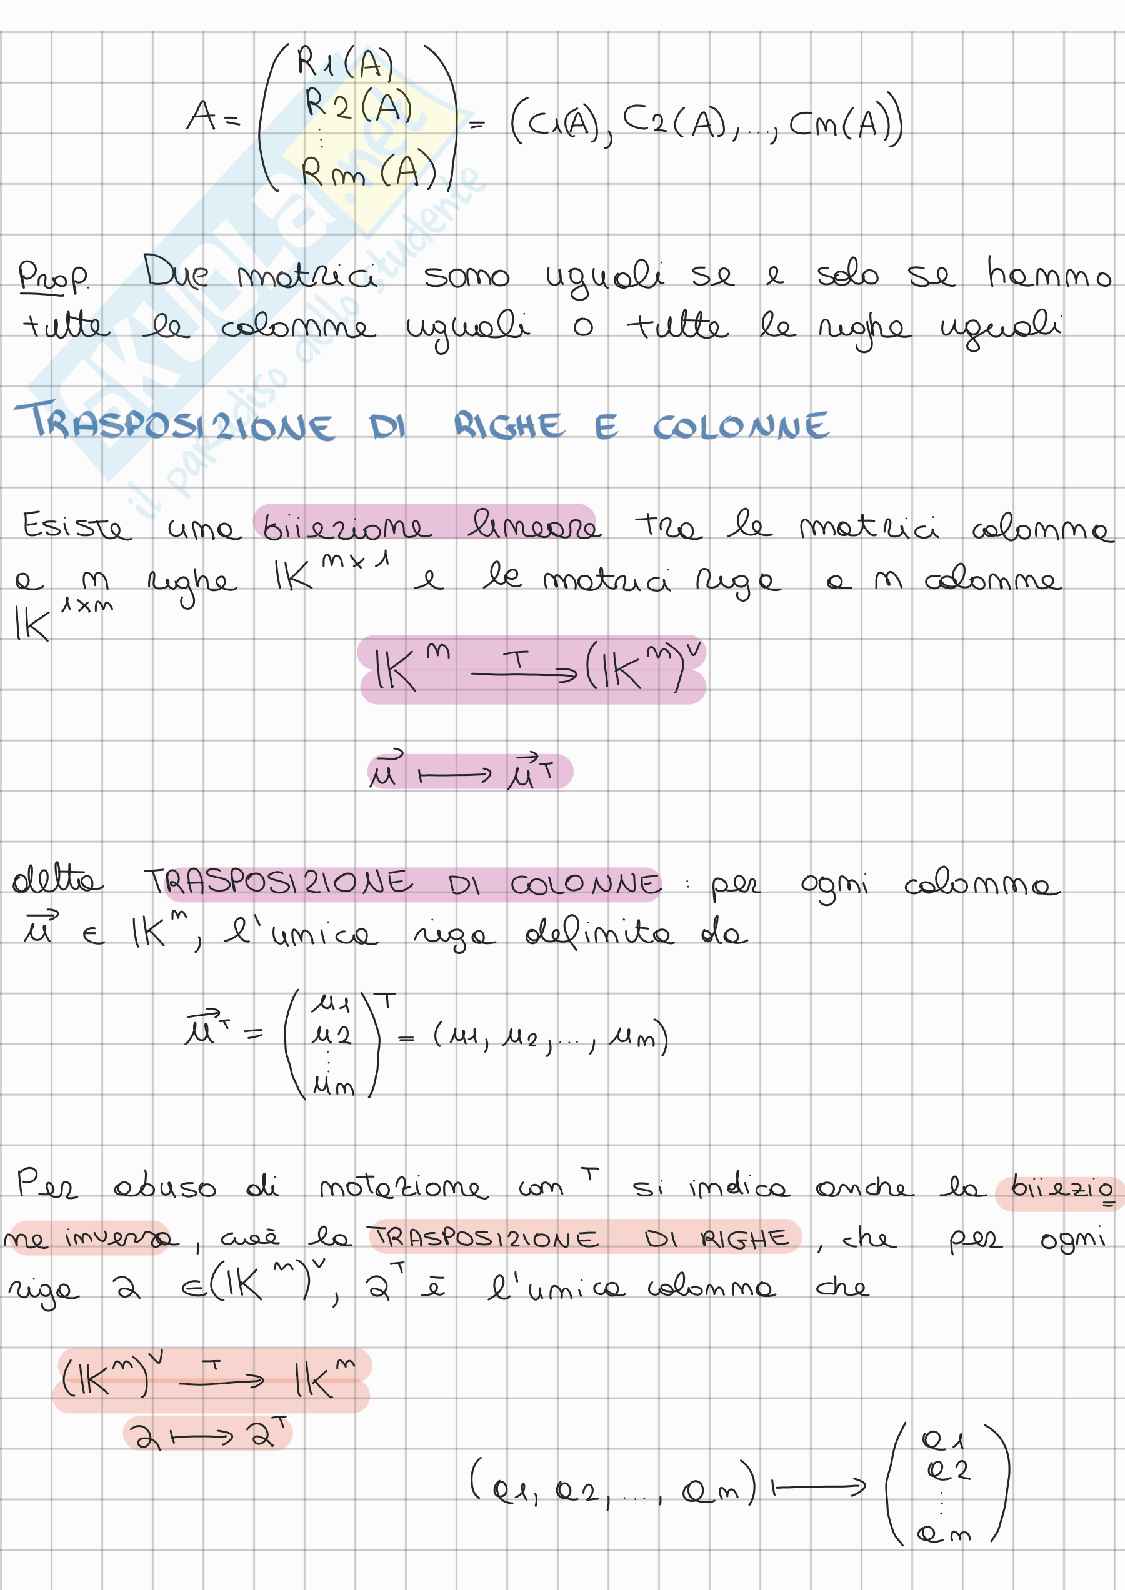 A = ( R1(A) R2(A) ⋮ Rm(A) ) = (C1(A), C2(A), ..., Cn(A))
Prop. Due matrici sono uguali se e solo se hanno
tutte le colonne uguali o tutte le righe uguali
TRASPOSIZIONE DI RIGHE E COLONNE
Esiste una biiezione lineare tra le matrici colonna
a n righe 𝕂^(n×1) e le matrici riga a n colonne
𝕂^(1×n)
𝕂^n —T→ (𝕂^n)^∨
u⃗ ⟼ u⃗^T
detta TRASPOSIZIONE DI COLONNE : per ogni colonna
u⃗ ∈ 𝕂^n, l'unica riga definita da
u⃗^T = ( u1 u2 ⋮ un )^T = (u1, u2, ..., un)
Per abuso di notazione con ^T si indica anche la biiezio
ne inversa, cioè la TRASPOSIZIONE DI RIGHE, che per ogni
riga a ∈ (𝕂^n)^∨, a^T è l'unica colonna che
(𝕂^n)^∨ —T→ 𝕂^n
a ⟼ a^T
(a1, a2, ..., an) ⟼ ( a1 a2 ⋮ an )
SKUOLA.net
il paradiso dello studente